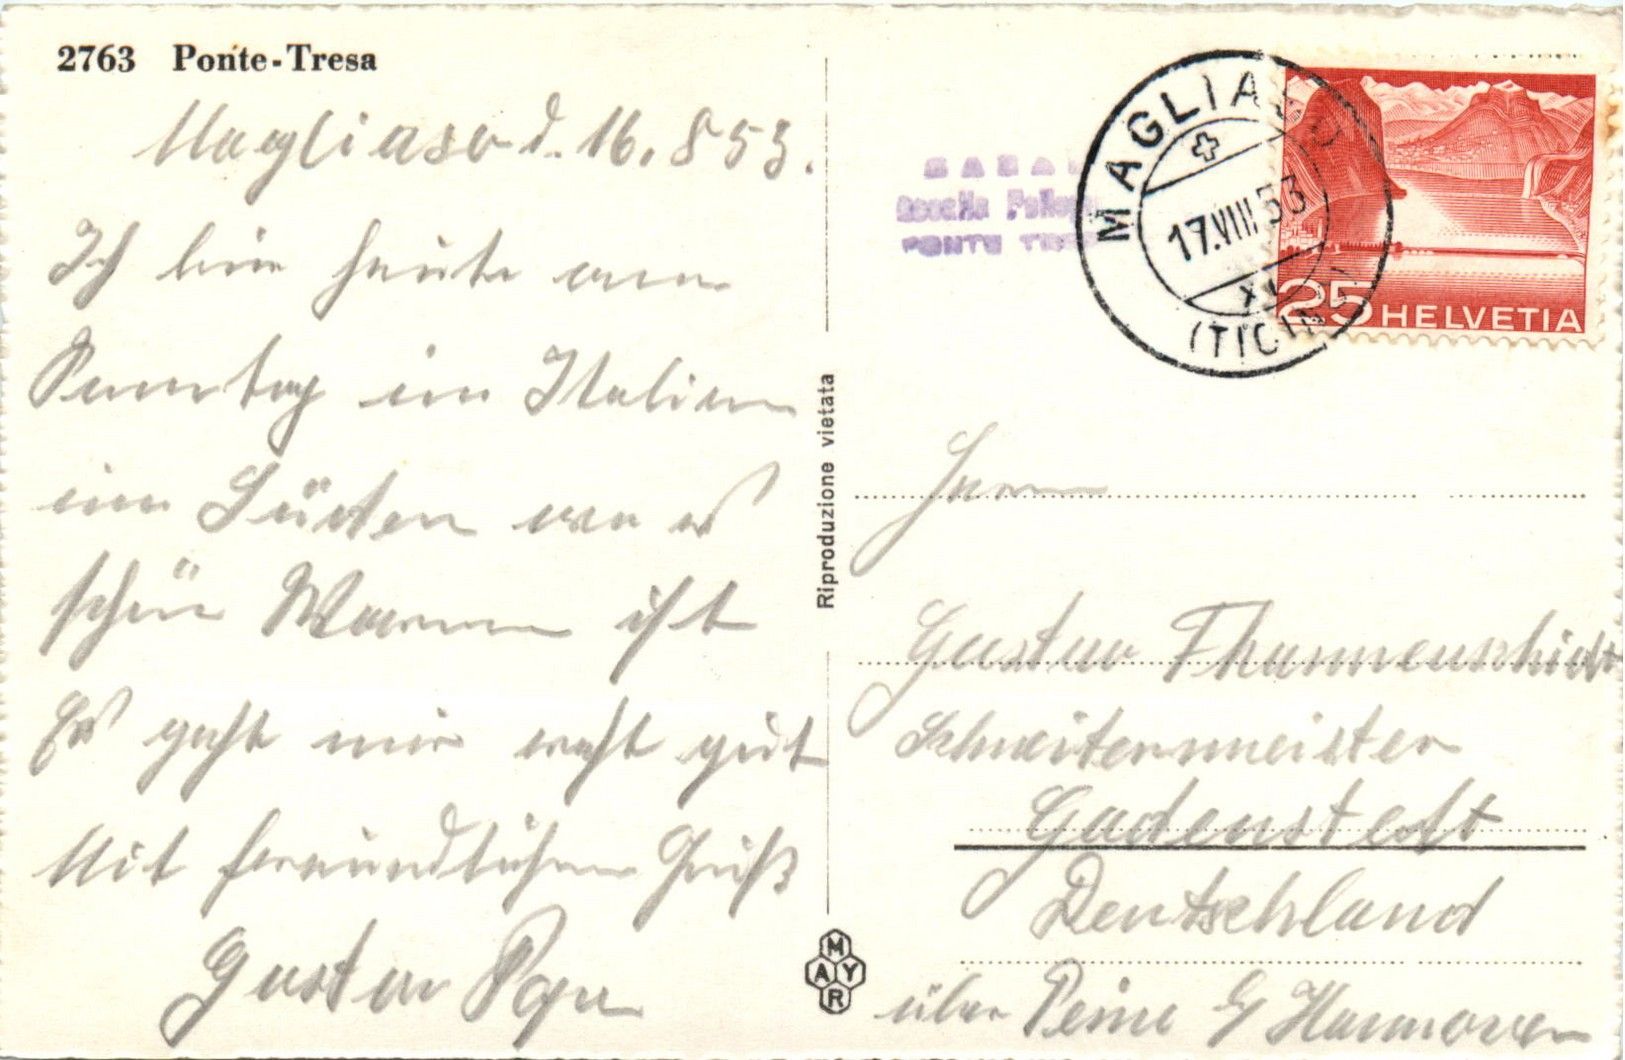 2763 Ponte-Tresa
Magliaso d. 16. 8 53.
Ich bin heute am
Sonntag in Italien
im Süden wo es
schön Warm ist
Es geht mir recht gut
Mit freundlichem Gruß
Gustav
Riproduzione vietata
MAYR
PONTE
MAGLIASO
17.VIII.53
(TICINO)
25 HELVETIA
Herrn
Gustav
Schneidermeister
Gadenstedt
Deutschland
über Peine b/ Hannover